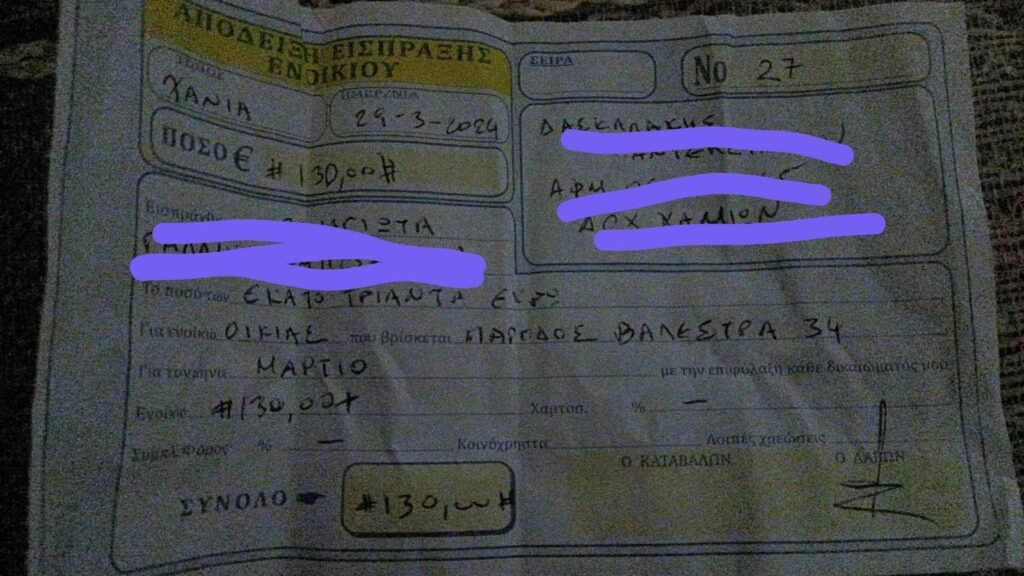 ΑΠΟΔΕΙΞΗ ΕΙΣΠΡΑΞΗΣ
ΕΝΟΙΚΙΟΥ
ΤΟΠΟΣ
ΧΑΝΙΑ
ΗΜΕΡ/ΝΙΑ
29-3-2024
ΣΕΙΡΑ
Νο 27
ΠΟΣΟ € #130,00#
ΔΑΣΚΑΛΑΚΗΣ
ΑΦΜ
ΔΟΥ ΧΑΝΙΩΝ
Το ποσό των ΕΚΑΤΟ ΤΡΙΑΝΤΑ ΕΥΡΩ
Για ενοίκιο ΟΙΚΙΑΣ που βρίσκεται ΠΑΡΟΔΟΣ ΒΑΛΕΣΤΡΑ 34
Για τον μήνα ΜΑΡΤΙΟ με την επιφύλαξη κάθε δικαιώματός μου
Ενοίκιο #130,00# Χαρτοσ. % —
% — Κοινόχρηστα Λοιπές χρεώσεις
Ο ΚΑΤΑΒΑΛΩΝ Ο ΛΑΒΩΝ
ΣΥΝΟΛΟ #130,00#